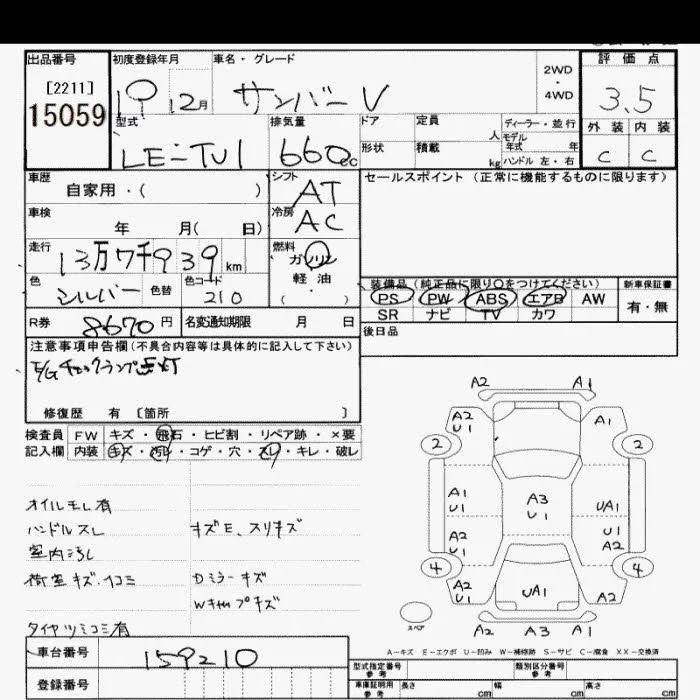 出品番号 初度登録年月 車名・グレード 2WD・4WD 評価点
[2211]
15059
19 12月 サンバーV 3.5
型式 排気量 ドア 定員 人 ディーラー・並行
モデル年式 年 外装 内装
LE-TV1 660cc 形状 積載 kg ハンドル 左・右 C C
車歴 シフト セールスポイント (正常に機能するものに限ります)
自家用・( ) AT
車検 冷房
年 月( 日) AC
走行 燃料
13万7千939km ガソリン
色 色替 色コード 軽油
シルバー 210 ( ・ )
装備品 (純正品に限り〇をつけてください) 新車保証書
PS PW ABS エアB AW 有・無
SR ナビ TV カワ
R券 8670円 名変通知期限 月 日
後日品
注意事項申告欄 (不具合内容等は具体的に記入して下さい)
E/Gチェックランプ点灯
修復歴 有 [箇所 ]
検査員 FW キズ・飛石・ヒビ割・リペア跡・×要
記入欄 内装 キズ・汚レ・コゲ・穴・スレ・キレ・破レ
オイルモレ有
ハンドルスレ キズE、スリキズ
室内汚レ
荷室キズ・凹コミ Dミラーキズ
タイヤツミコミ有
A2 A1
A2 U1 A1
2 2
A1 U1 A3 U1 UA1
A2 U1 U1 A2
4 4
A2 U1 UA1 A2
スペア A2 A3 A1
A-キズ E-エクボ U-凹み W-補修跡 S-サビ C-腐食 XX-交換済
車台番号 159210
型式指定番号 参考 類別区分番号 参考
登録番号 車庫証明用 参考 長さ cm 幅 cm 高さ cm